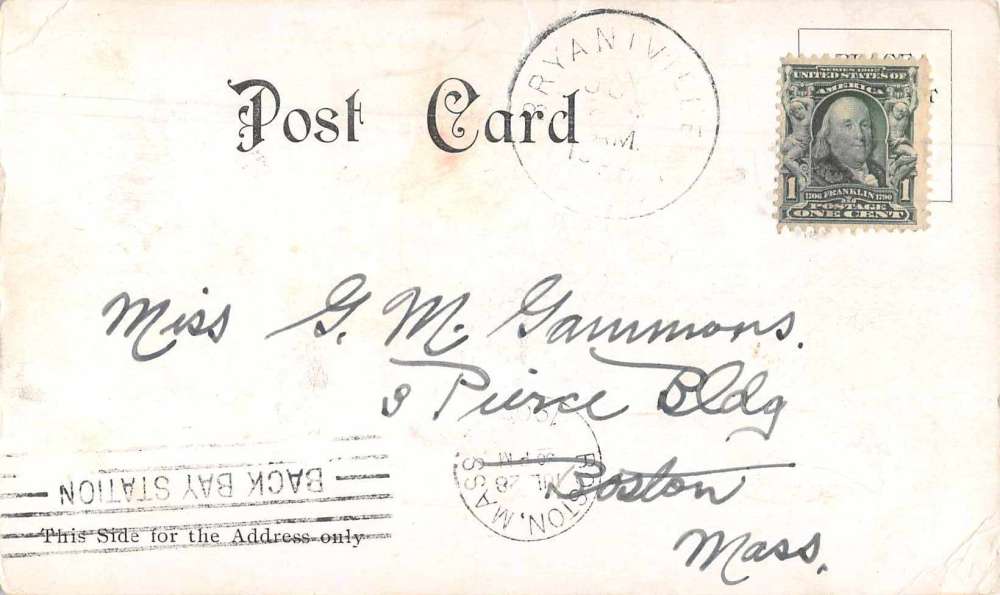 Post Card
BRYANTVILLE
AM.
SERIES 1902
UNITED STATES OF
AMERICA
1 1706 FRANKLIN 1790 1
POSTAGE
ONE CENT
Miss G. M. Gammons.
3 Pierce Bldg
Boston
Mass.
BOSTON, MASS
BACK BAY STATION
This Side for the Address only